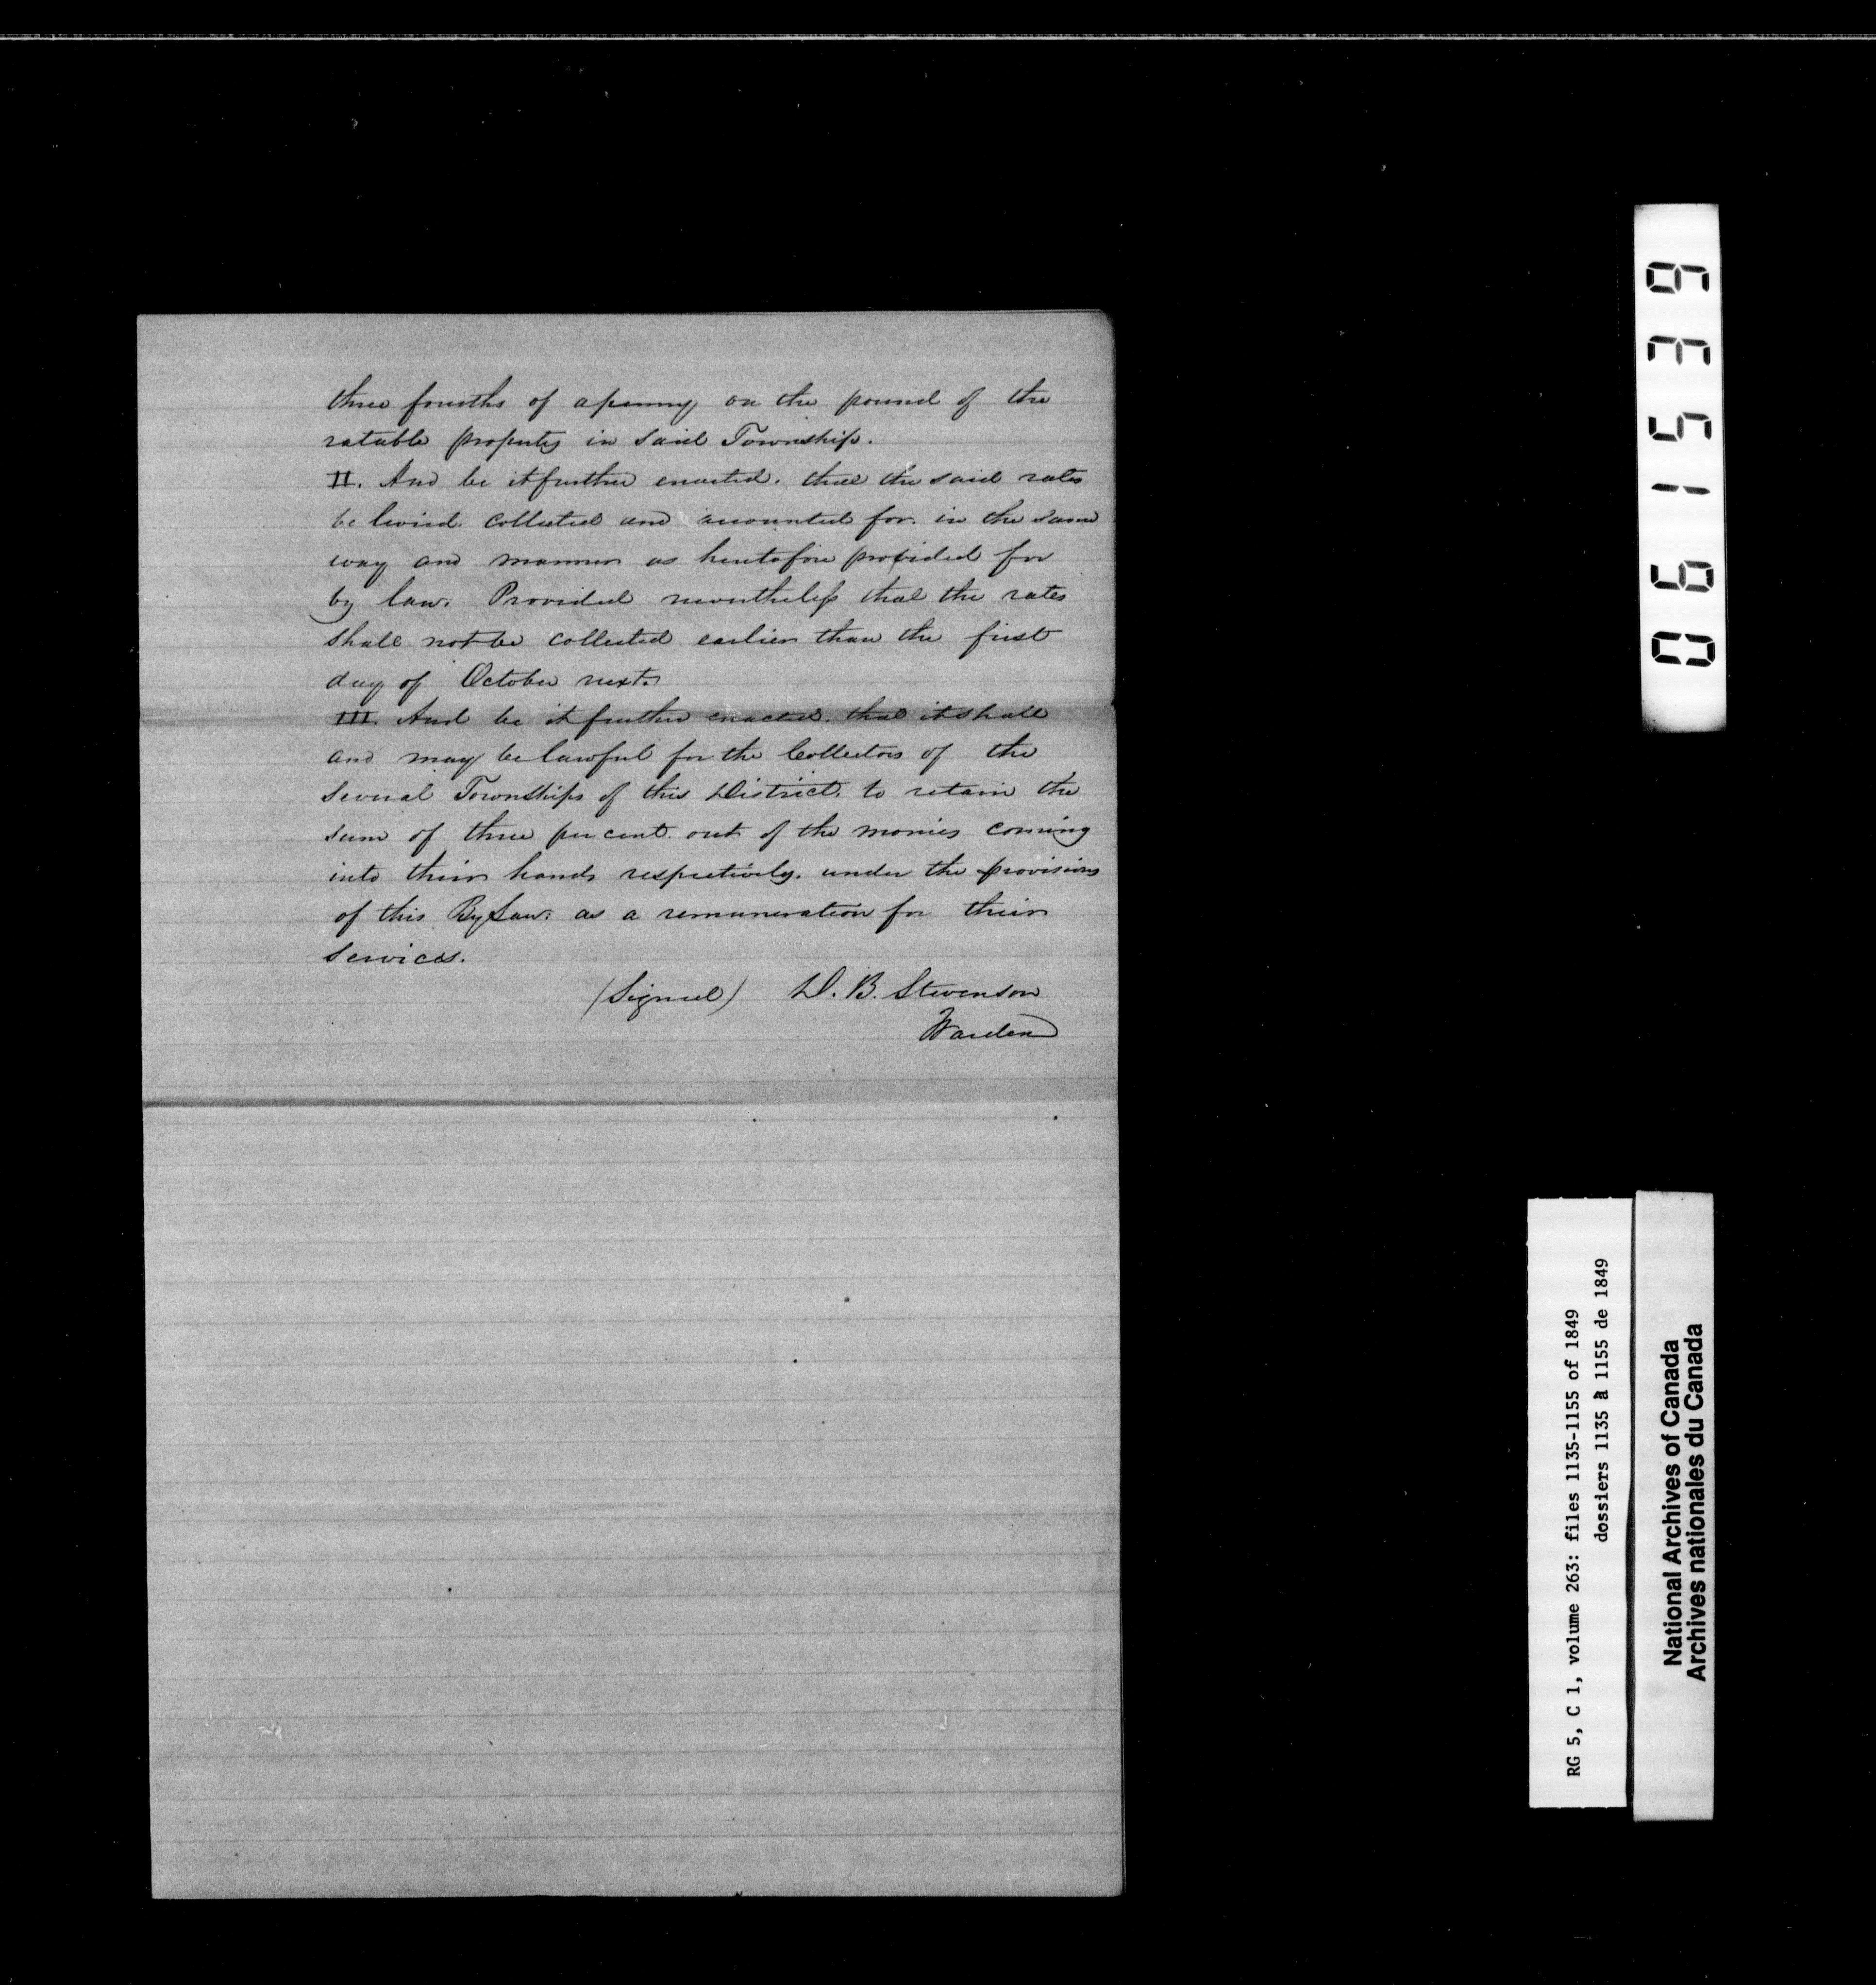 three fourths of a penny on the pound of the
ratable property in said Township.
II. And be it further enacted. that the said rates
be levied. collected and accounted for. in the same
way and manner as heretofore provided for
by law. Provided nevertheless that the rates
shall not be collected earlier than the first
day of October next.
III. And be it further enacted. that it shall
and may be lawful for the Collectors of the
several Townships of this District. to retain the
sum of three per cent. out of the monies coming
into their hands respectively. under the provisions
of this By Law. as a remuneration for their
services.
(Signed) D. B. Stevenson
Warden
061539
RG 5, C 1, volume 263: files 1135-1155 of 1849
dossiers 1135 à 1155 de 1849
National Archives of Canada
Archives nationales du Canada